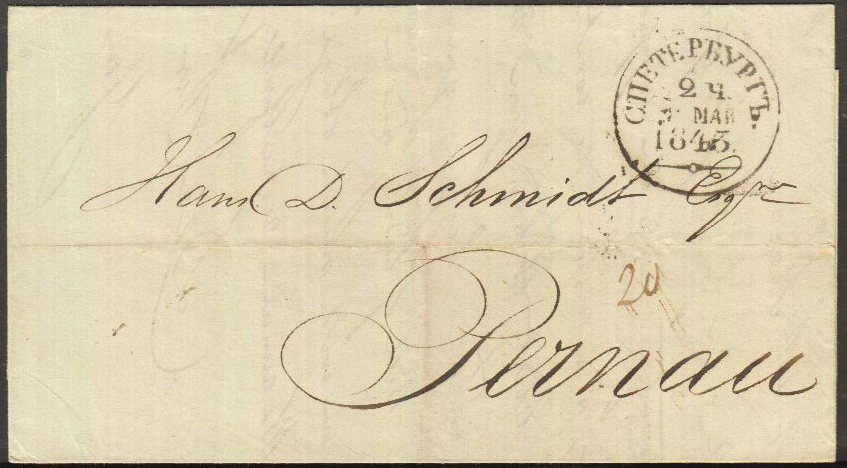 С.ПЕТЕРБУРГЪ.
2 Ч.
МАЯ
1843.
Hans D. Schmidt Esqre
20
Pernau